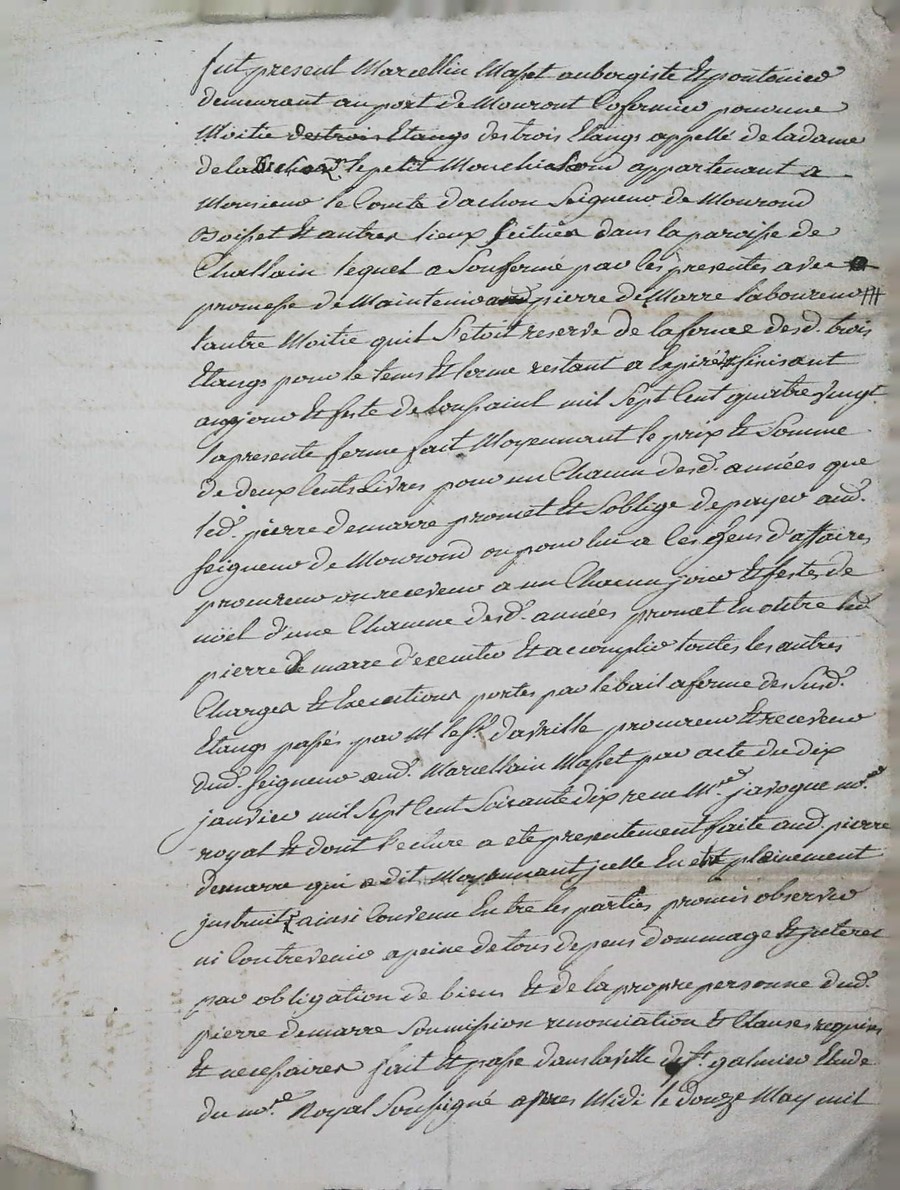 fut present Marcellin Maset aubergiste et pontonier
demeurant au port de Mouront cofermier pour une
Moitié des trois Etangs des trois Etangs appellé de la dame
de la le petit Mouchi appartenant a
Monsieur le Comte dachon Seigneur de Mourond
Boisset et autres lieux scitués dans la paroisse de
Challain lequel a Sousfermé par les presentes avec
promesse de Maintenir aud. pierre de Marre laboureur
lautre Moitié quil Setoit reservé de la ferme desd. trois
Etangs pour le tems et terme restant a expirér finisant
au jour et feste de toussaint mil Sept Cent quatre vingt
la presente ferme fait Moyennant le prix et Somme
de deux Cents Livres pour un Chacun desd. années que
led. pierre demarre promet et Soblige de payer aud.
seigneur de Mourond ou pour lui a ses gens d'affaires
procureur ou receveur a un Chacun jour et feste de
noël d'une Chacune desd. années promet En outre led.
pierre De marre d'executer Et accomplir toutes les autres
Charges et Executions portés par le bail a ferme des Susd.
Etangs passés par M. le Sr. davrille procureur et receveur
dud. seigneur aud. Marcellain Maset par acte du dix
janvier mil Sept Cent Soixante dix recu Mre. javogue nre.
royal et dont lecture a eté presentement faite aud. pierre
demarre qui a dit Moyennant jcelle En etre pleinement
justruit ainsi Convenu Entre les parties promis observer
ni Contrevenir a peine de tous depens dommage et jnteret
par obligation de biens et de la propre personne dud.
pierre demarre Soumission renonciation et Clauses requises
et necessaires fait et passé dans la ville de St. galmier Etude
du nre. Royal Soussigné apres Midi le douze May mil